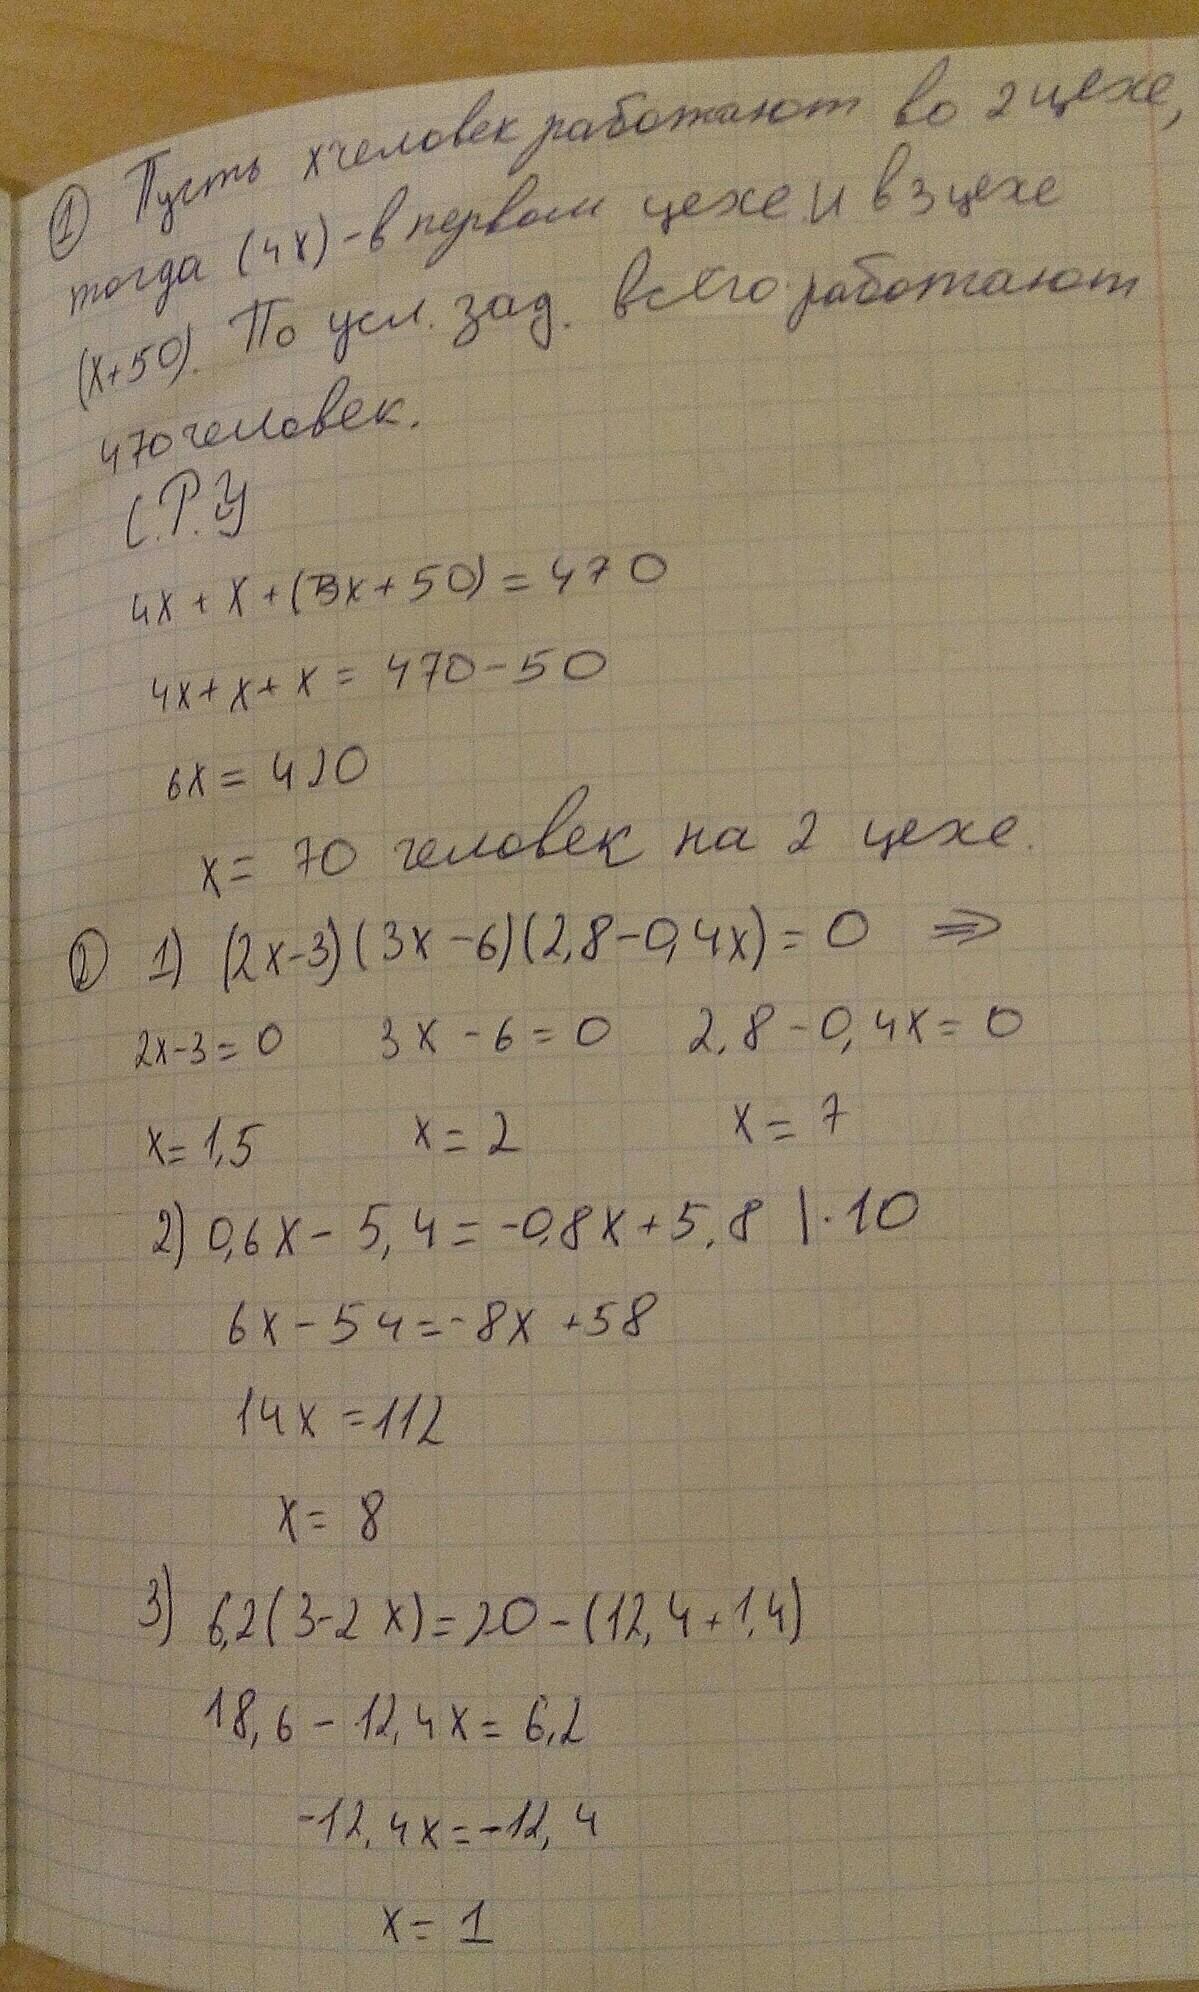 ① Пусть x человек работают во 2 цехе,
тогда (4x) - в первом цехе и в 3 цехе
(x+50). По усл. зад. всего работают
470 человек.
С.Р.У
4x + x + (x + 50) = 470
4x + x + x = 470 - 50
6x = 420
x = 70 человек на 2 цехе.
② 1) (2x-3)(3x-6)(2,8-0,4x)=0 ⇒
2x-3=0 3x-6=0 2,8-0,4x=0
x=1,5 x=2 x=7
2) 0,6x - 5,4 = -0,8x + 5,8 | · 10
6x - 54 = -8x + 58
14x = 112
x = 8
3) 6,2(3-2x) = 20 - (12,4 + 1,4)
18,6 - 12,4x = 6,2
-12,4x = -12,4
x = 1